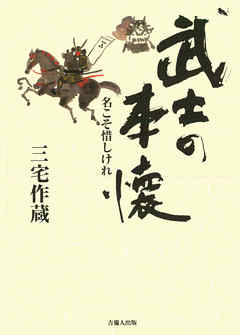 武士の本懐
名こそ惜しけれ
三宅作蔵
吉備人出版